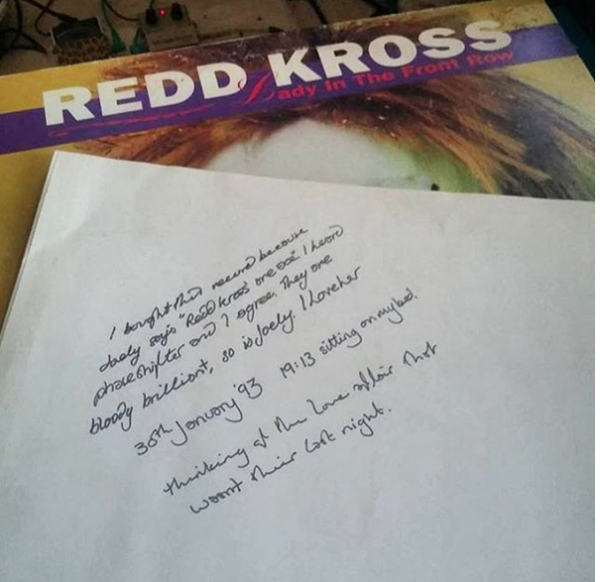 REDD KROSS
Lady In The Front Row
I bought this record because
Joely says "Redd Kross are ace. I heard
phaseshifter and I agree. They are
bloody brilliant, so is Joely. I love her
30th January '93 19:13 sitting on my bed.
thinking of the love affair that
wasn't their last night.